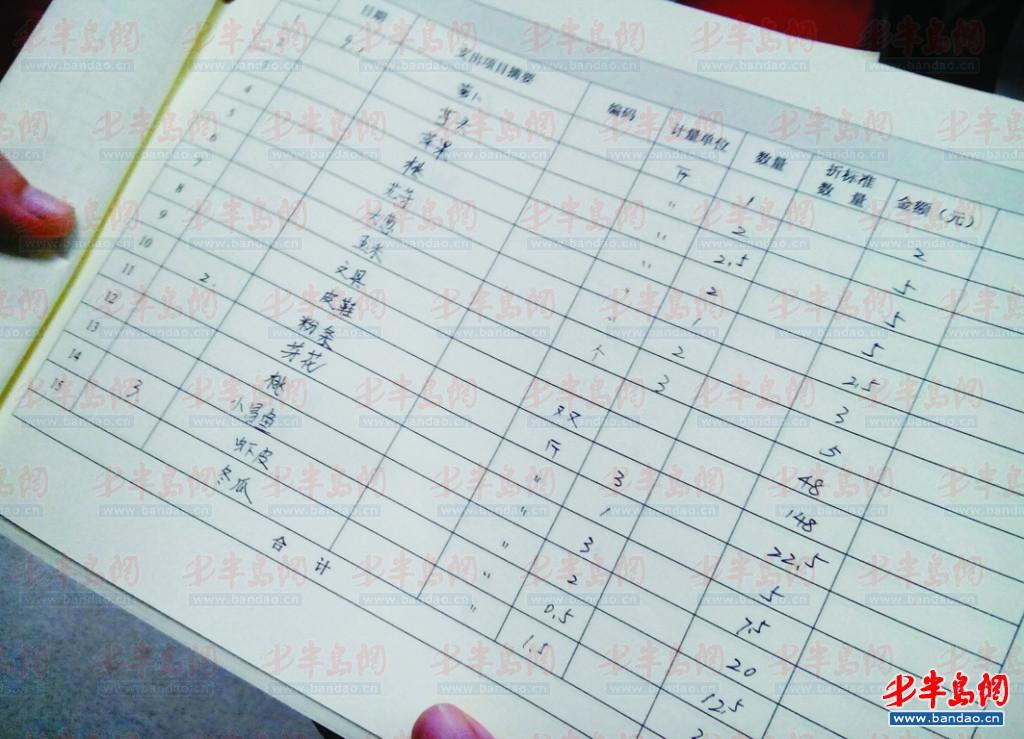 日期 支出项目摘要 编码 计量单位 数量 折标准数量 金额（元）
9.1 斤 1 2
3 〃 2 5
4 苹果 〃 2.5 5
5 桃 〃 2 5
6 〃 1 2.5
7 大葱 〃 2 3
8 玉米 个 3 5
9 文具 48
10 2. 皮鞋 双 148
11 粉条 斤 3 22.5
12 芽花 〃 1 5
13 桃 〃 3 7.5
14 3. 小号鱼 〃 2 20
15 虾皮 〃 0.5 12.5
冬瓜 〃 1.5
合 计
半岛网
www.bandao.cn